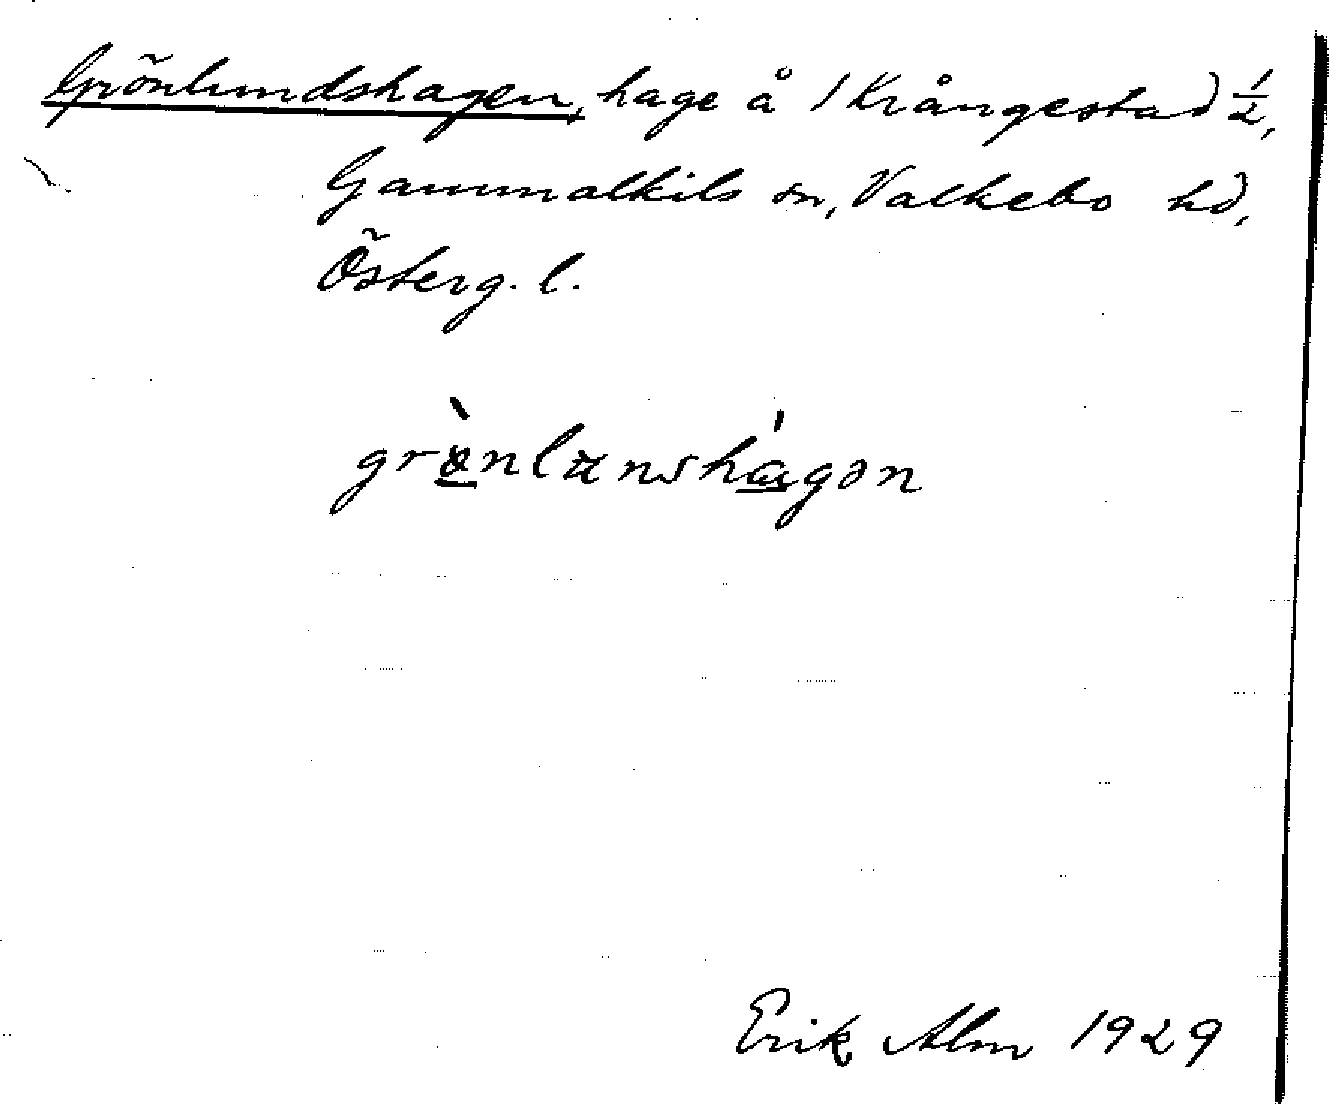 Grönlundshagen, hage å 1 Krångestad ½,
Gammalkils sn, Valkebo hd,
Österg. l.
grö̀nlunshágən
Erik Alm 1929